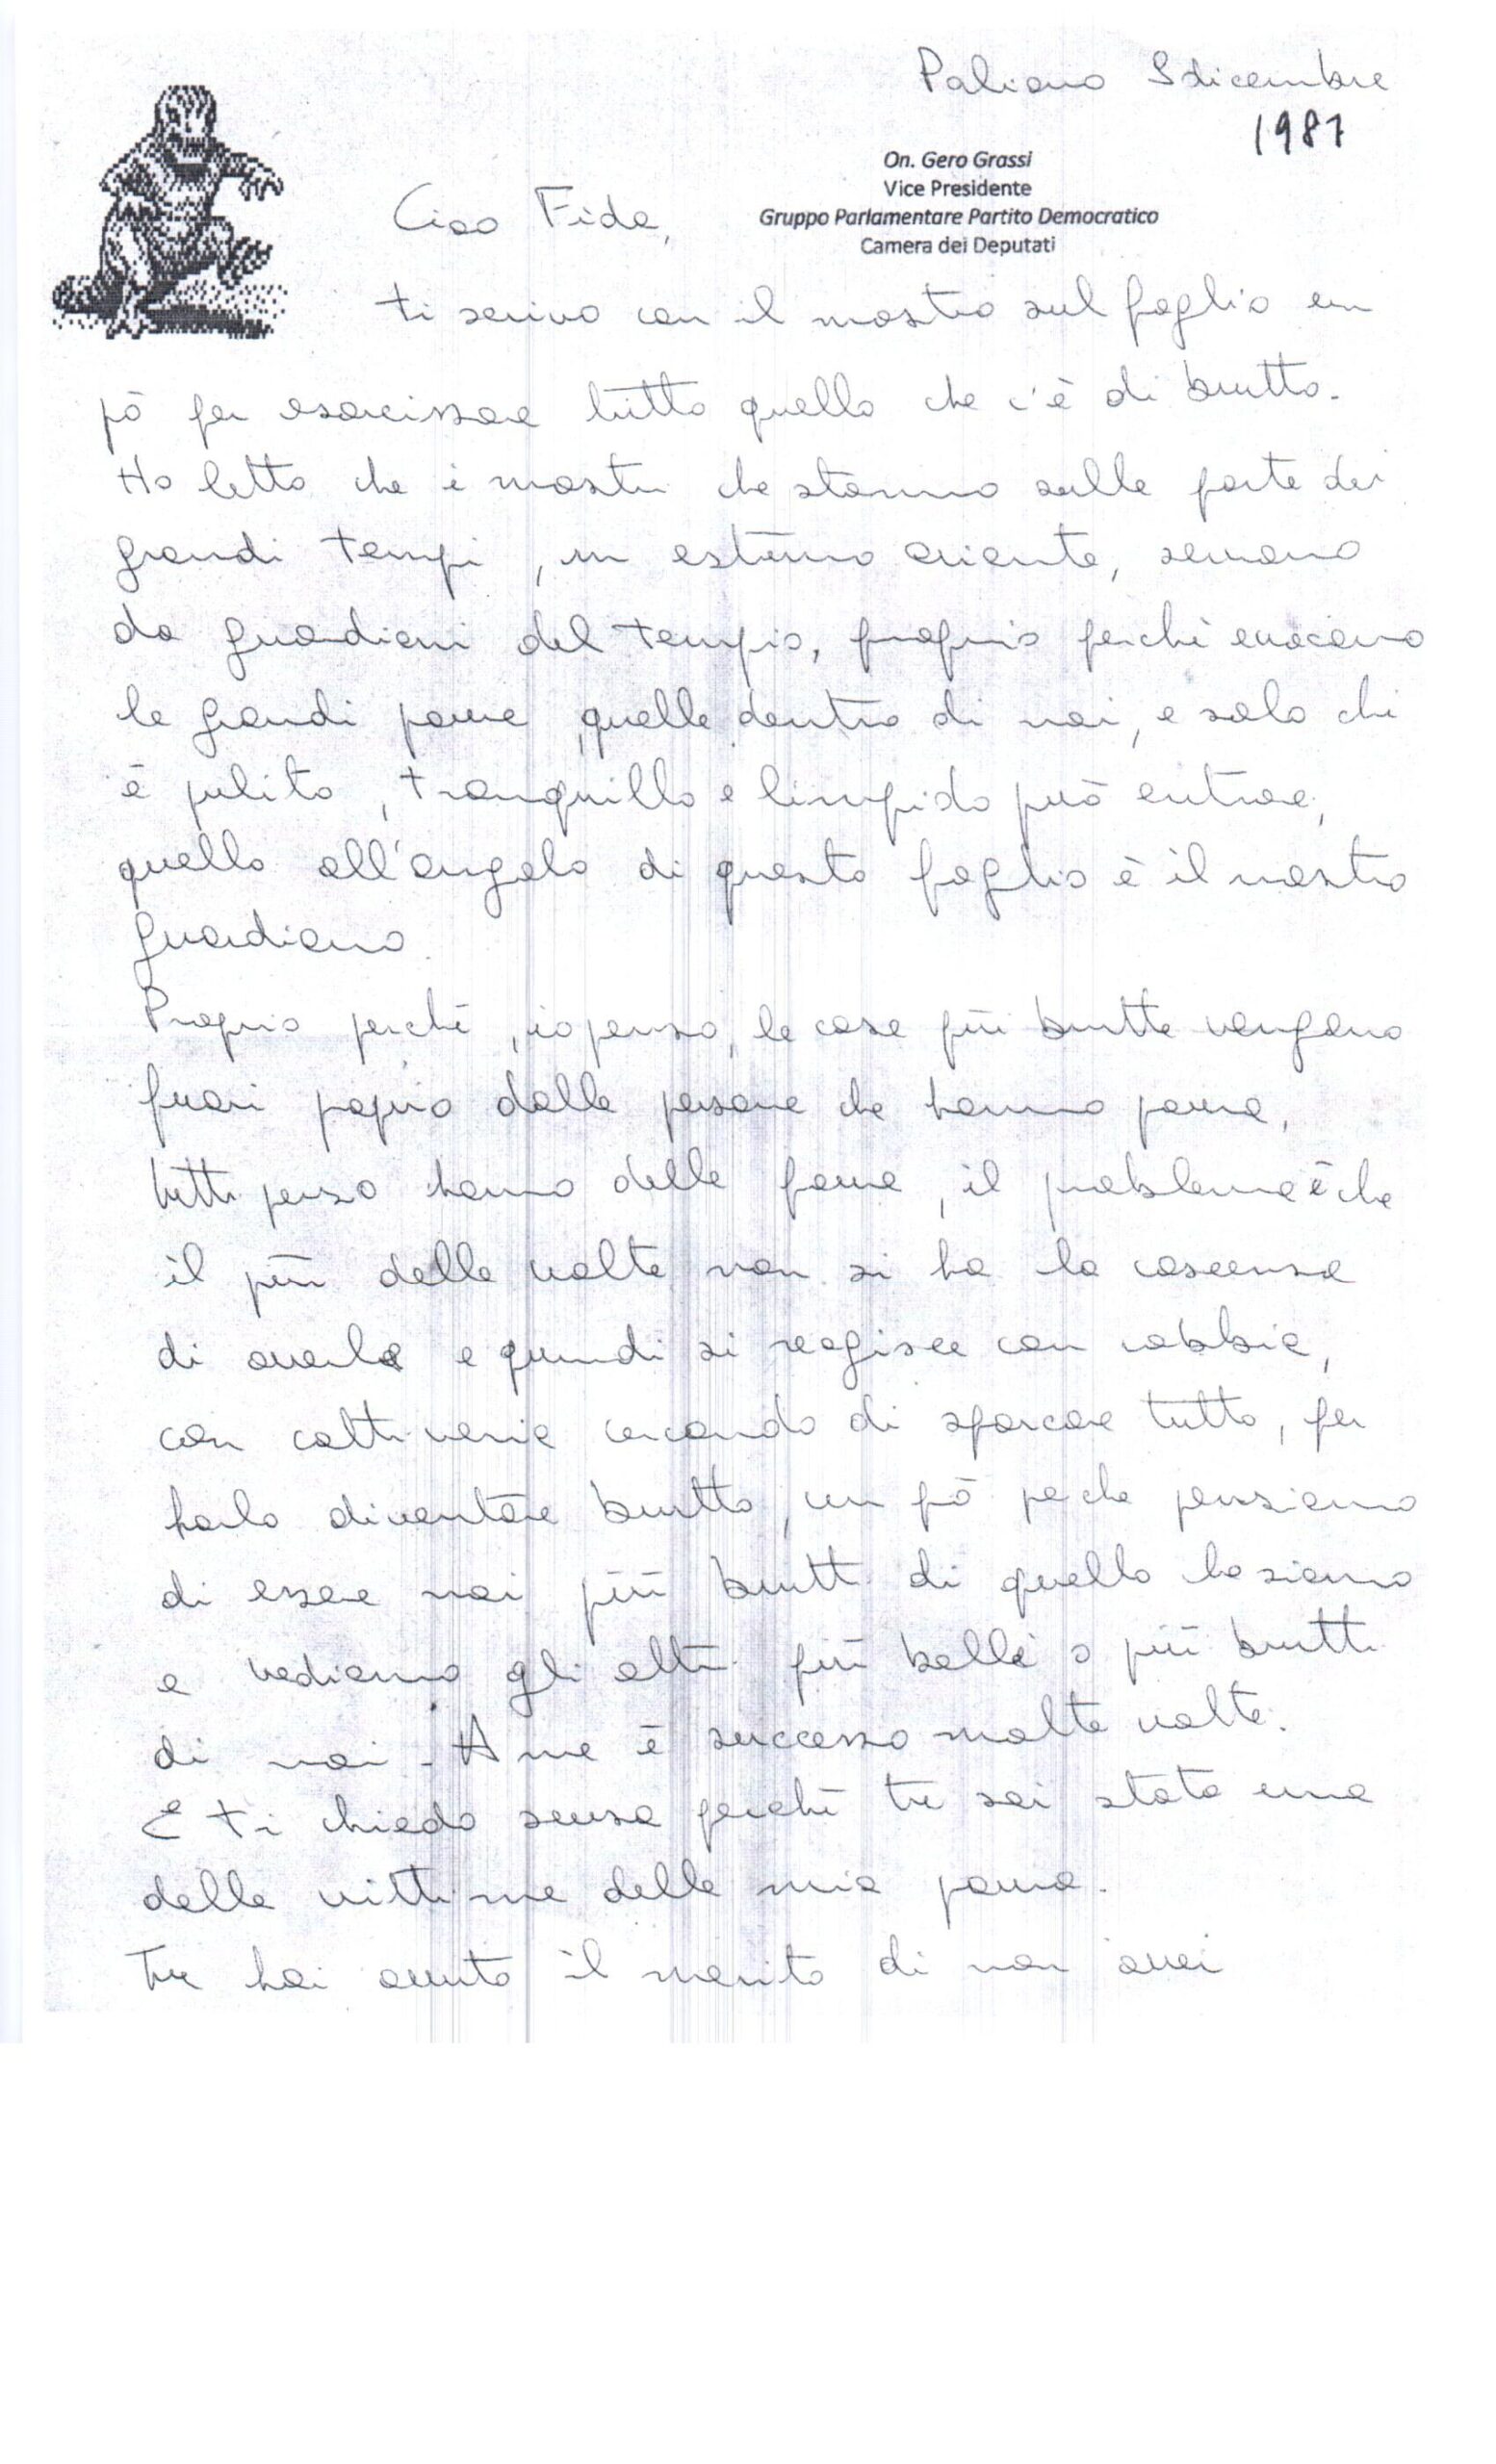 Paliano 9 dicembre
1987
On. Gero Grassi
Vice Presidente
Gruppo Parlamentare Partito Democratico
Camera dei Deputati
Ciao Fida,
ti scrivo con il mostro sul foglio un
pò per esorcizzare tutto quello che c'è di brutto.
Ho letto che i mostri che stanno sulle porte dei
grandi tempi, in estremo oriente, servano
da guardiani del tempio, proprio perché evocano
le grandi paure, quelle dentro di noi, e solo chi
è pulito, tranquillo e limpido può entrare,
quello all'angolo di questo foglio è il nostro
guardiano.
Proprio perché, io penso, le cose più brutte vengono
fuori poprio dalle persone che hanno paura,
tutti penso hanno delle paure, il problema è che
il più delle volte non si ha la coscienza
di averla e quindi si reagisce con rabbia,
con cattiveria cercando di sporcare tutto, per
farlo diventare brutto, un pò perche pensiamo
di essere noi più brutti di quello che siamo
e vediamo gli altri più belli o più brutti
di noi. A me è successo molte volte.
E ti chiedo scusa perché tu sei stata una
delle vittime della mia paura.
Tu hai avuto il merito di non aver